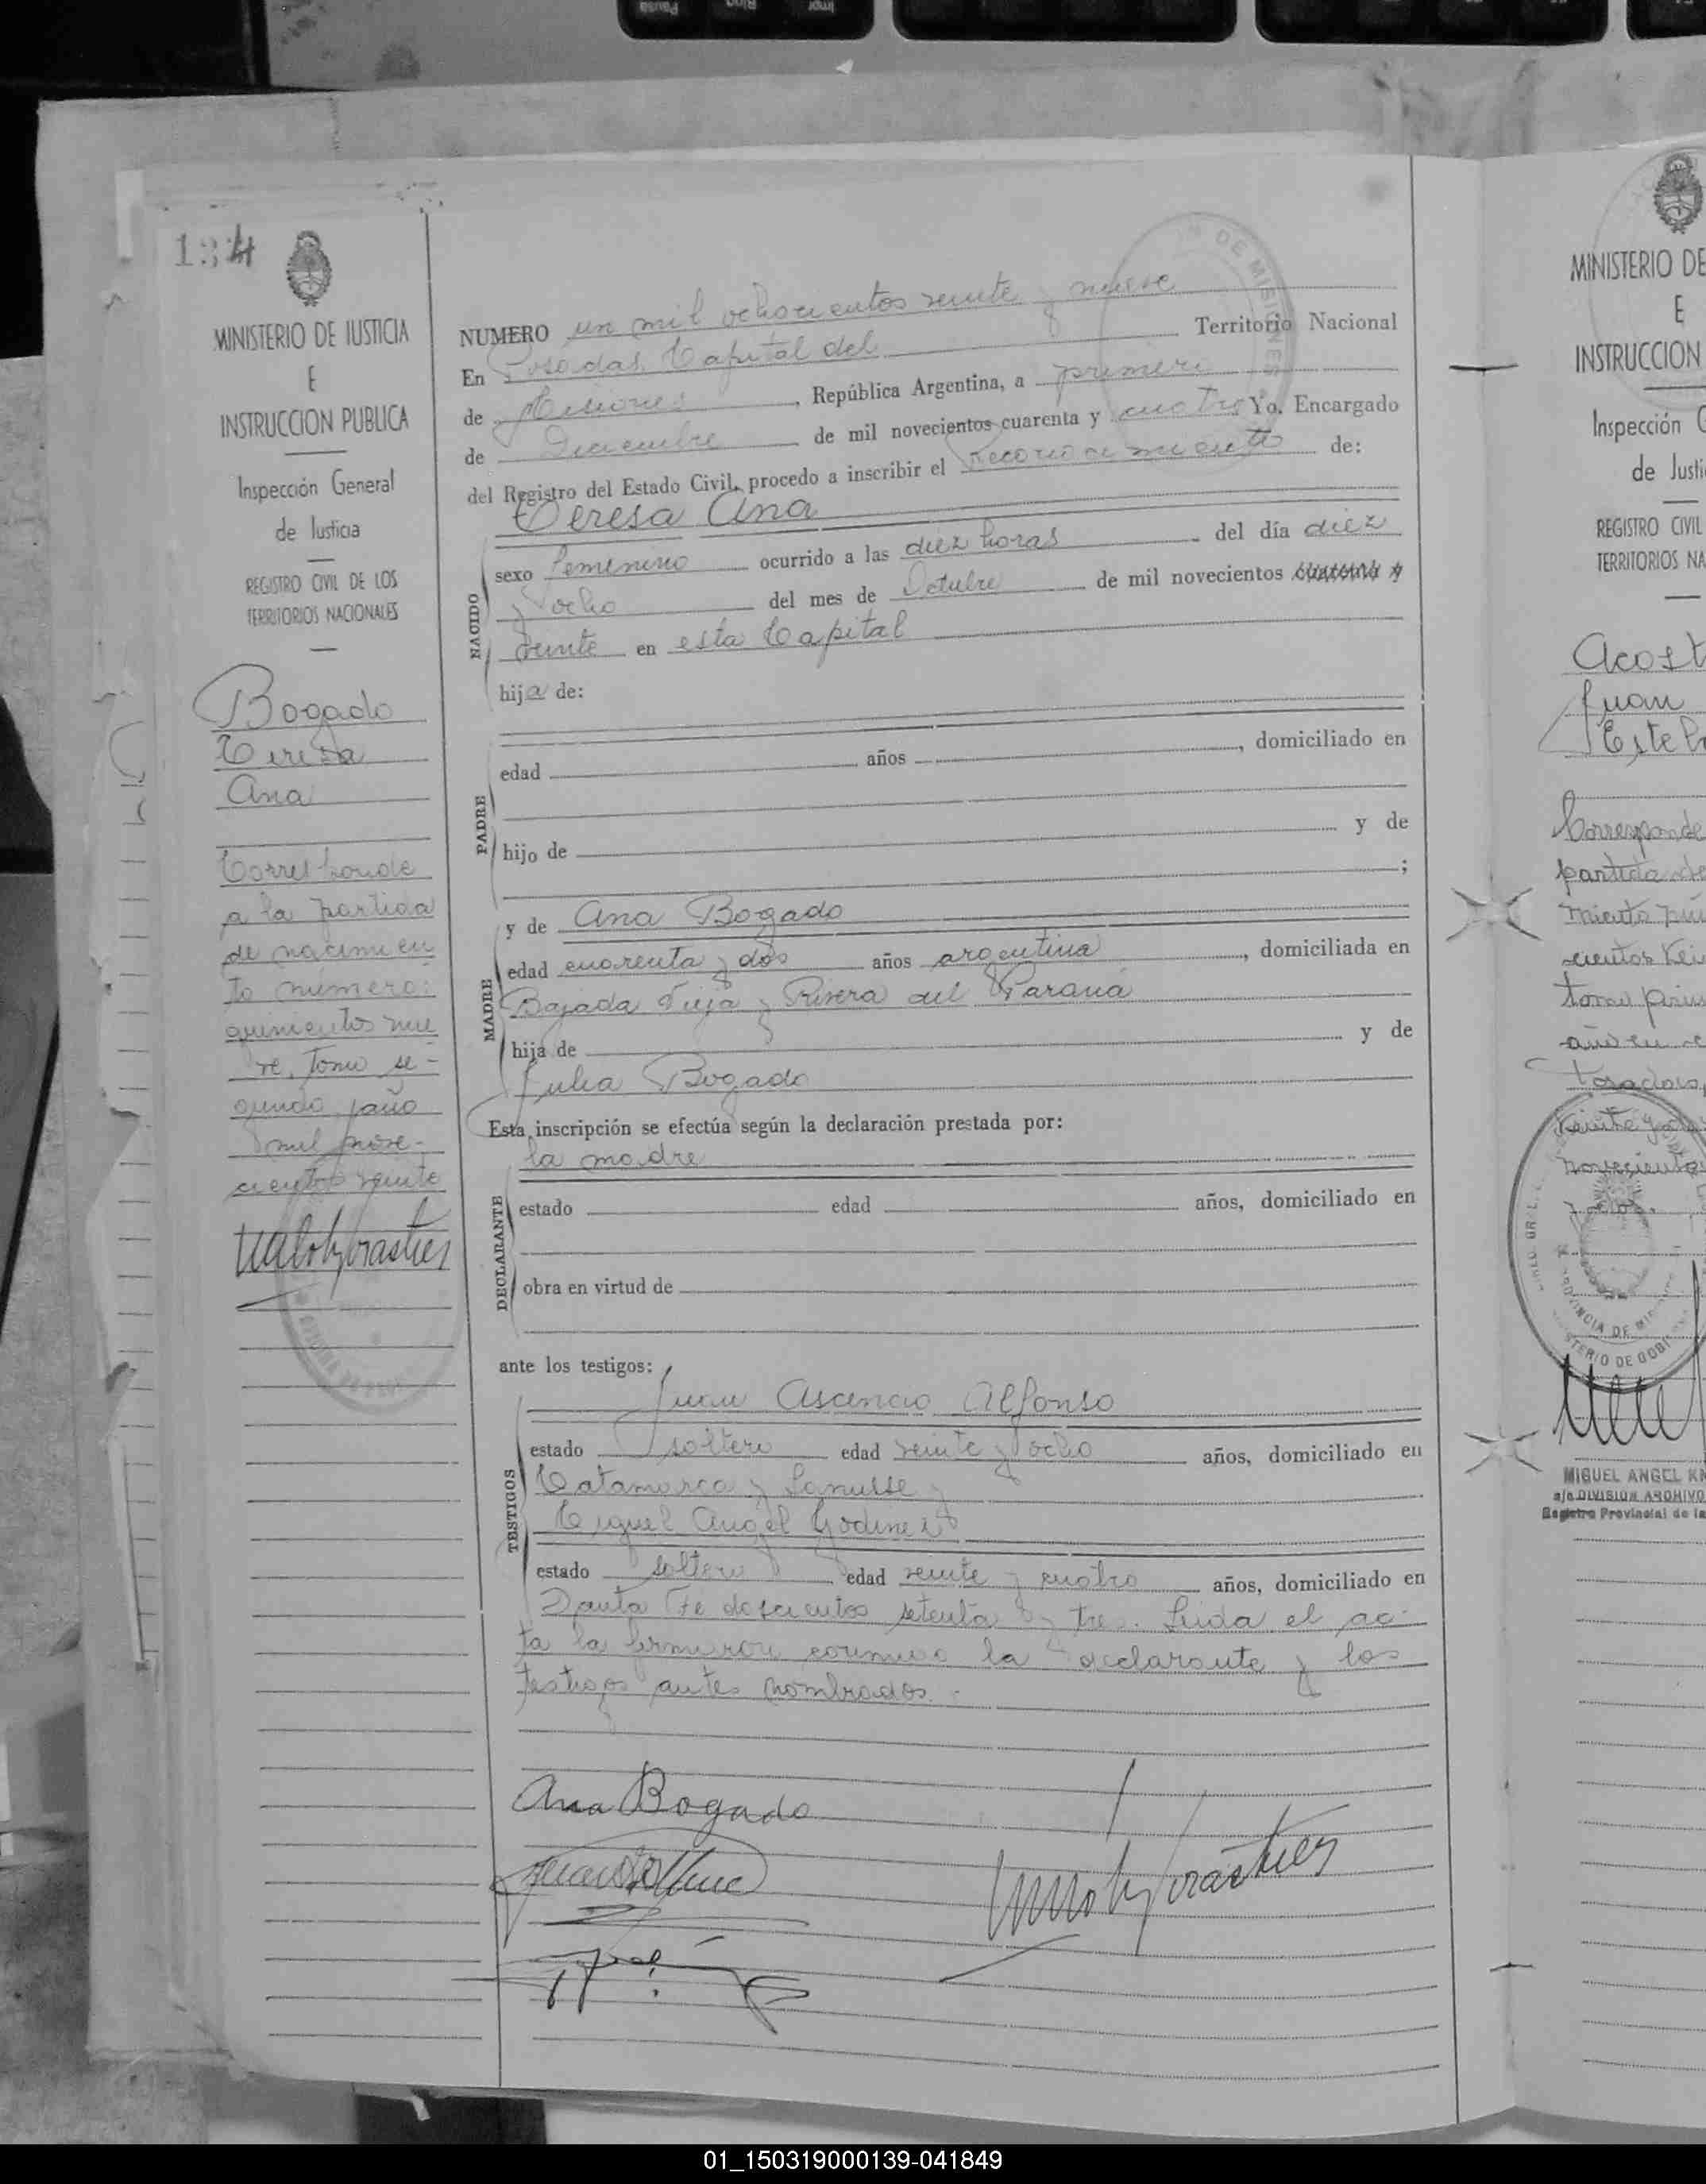 Pausa
Bloq
Impr
134
MINISTERIO DE JUSTICIA
E
INSTRUCCION PUBLICA
Inspección General
de Justicia
REGISTRO CIVIL DE LOS
TERRITORIOS NACIONALES
Bogado
Teresa
Ana
Corresponde
a la partida
de nacimien
to numero:
quinientos nue
ve, Tomo se-
gundo, año
mil nove-
cientos veinte
DE MISIONES
NUMERO un mil ochocientos veinte y nueve
En Posadas Capital del Territorio Nacional
de Misiones, República Argentina, a primero
de Diciembre de mil novecientos cuarenta y cuatro Yo, Encargado
del Registro del Estado Civil, procedo a inscribir el Reconocimiento de:
Teresa Ana
NACIDO
sexo femenino ocurrido a las diez horas del día diez
y ocho del mes de Octubre de mil novecientos cuarenta y
veinte en esta Capital
hija de:
PADRE
edad años , domiciliado en
hijo de y de
;
MADRE
y de Ana Bogado
edad cuarenta y dos años argentina , domiciliada en
Bajada Vieja y Rivera del Paraná
hija de y de
Julia Bogado
Esta inscripción se efectúa según la declaración prestada por:
la madre
DECLARANTE
estado edad años, domiciliado en
obra en virtud de
ante los testigos:
Juan Ascencio Alfonso
TESTIGOS
estado soltero edad veinte y ocho años, domiciliado en
Catamarca y Lanusse y
Miguel Angel Godinez
estado soltero edad veinte y cuatro años, domiciliado en
Santa Fe doscientos setenta y tres. Leida el ac-
ta la firmaron conmigo la declarante y los
testigos antes nombrados.-
Ana Bogado
MINISTERIO DE
E
INSTRUCCION
Inspección G
de Justi
REGISTRO CIVIL
TERRITORIOS NA
Acost
Juan
Esteb
Corresponde
partida de
miento
cientos
tomo
año
Posadas,
veinte y
novecientos
PROVINCIA DE MI
MIGUEL ANGEL KN
a/c DIVISION ARCHIVO
Registro Provincial de la
01_150319000139-041849